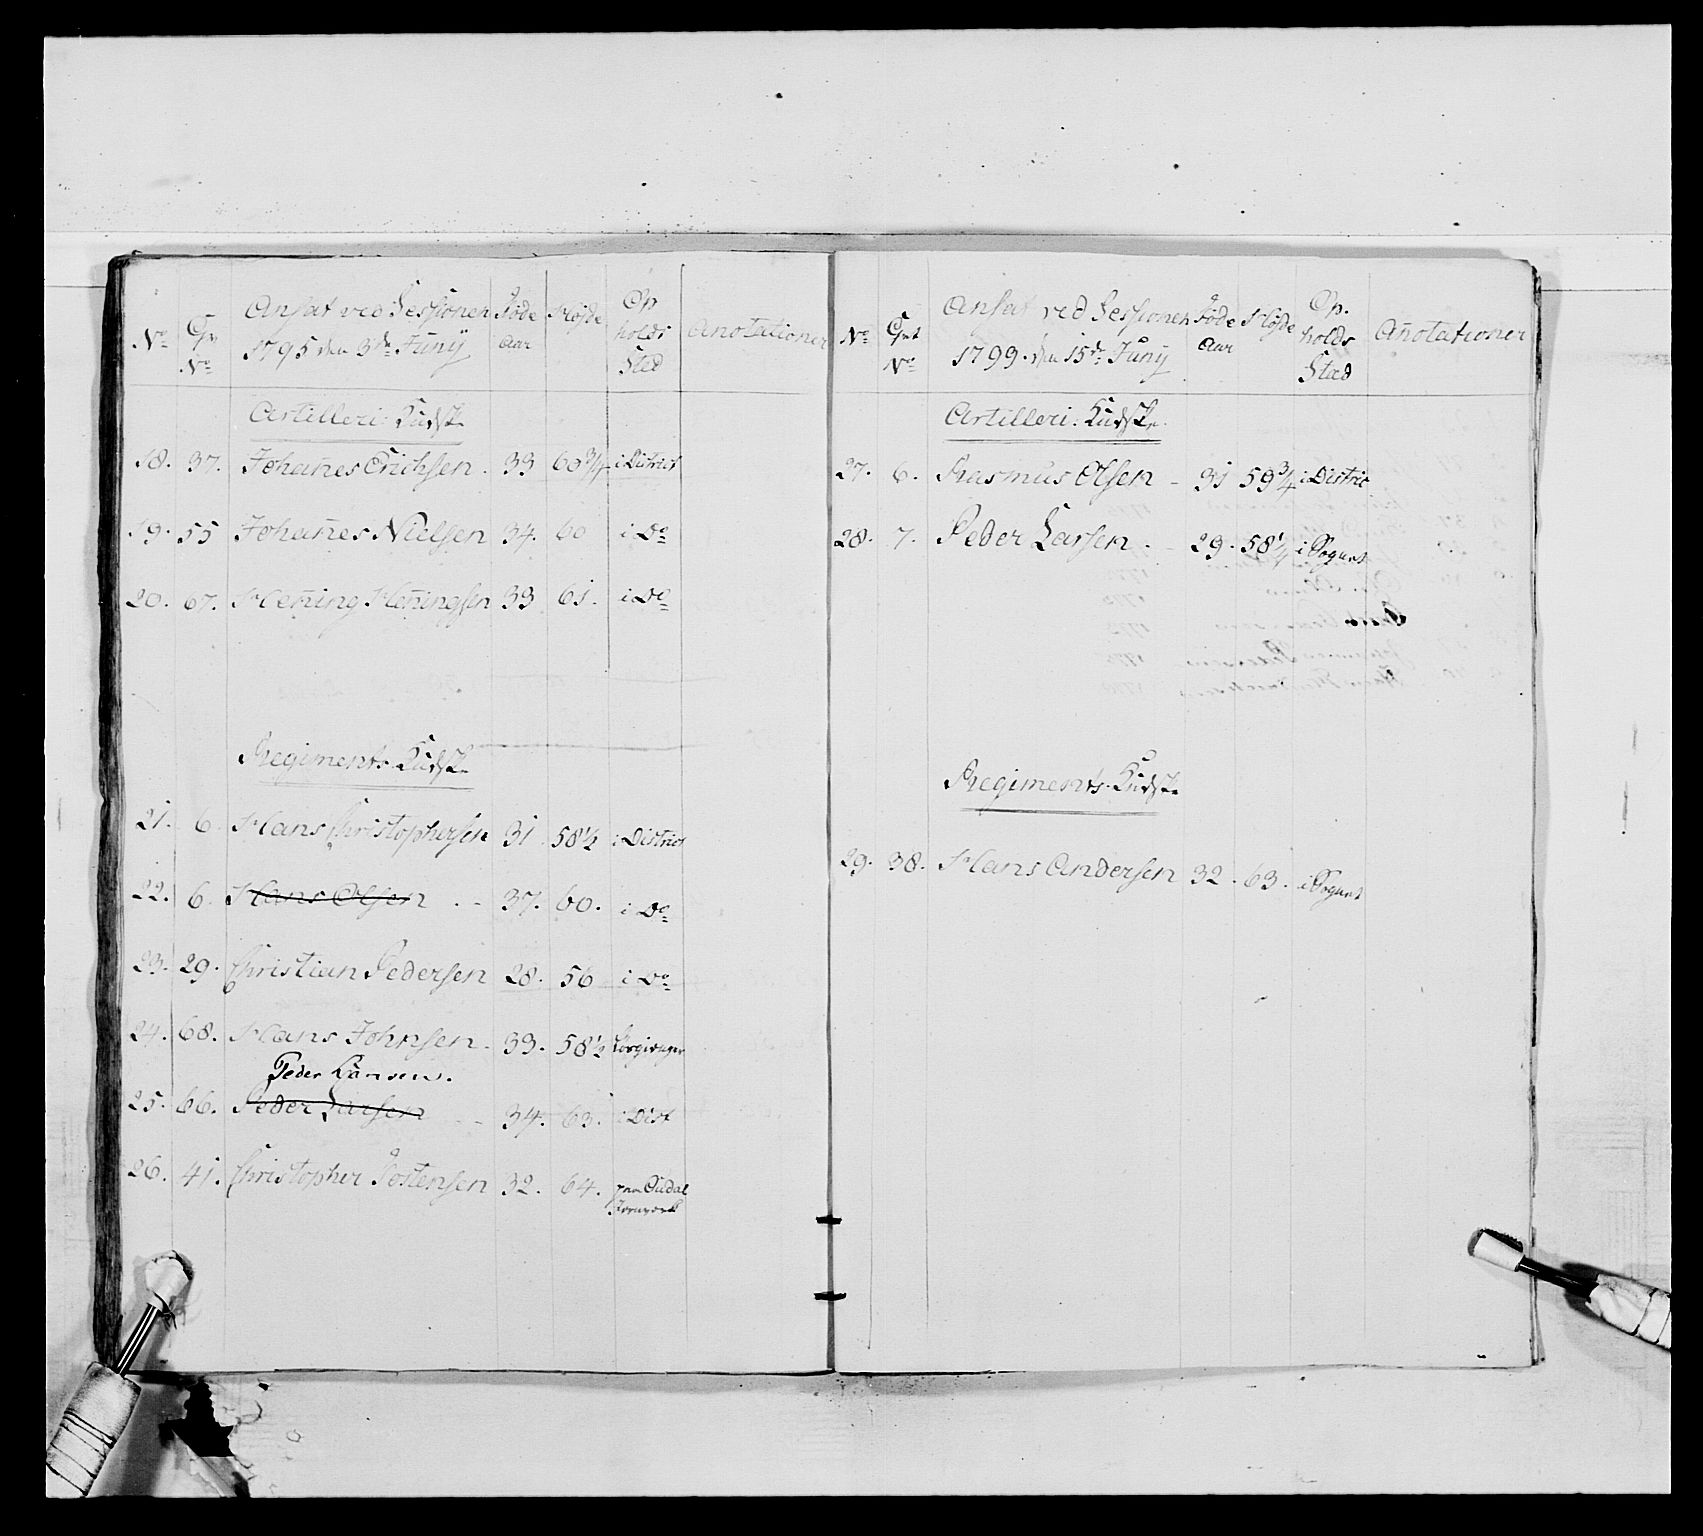 No | Cpt No | Ansat ved Sessionen 1795 den 3de Junÿ | Føde Aar | Høÿde | Op holds Sted | Anotationer
Artilleri Kudsk.
18. 37. Johan̄es Erichsen. 33 60 3/4 i District
19. 55 Johan̄es Nielsen 34. 60 i Do
20. 67. Hen̄ing Hen̄ingsen 33 61. i Do
Regiments Kudsk.
21. 6 Hans Christophersen 31 58 1/2 i District
22. 6. Hans Olsen 37. 60. i Do
23. 29. Christian Pedersen 28. 56 i Do
24. 68. Hans Johnsen. 33. 58 1/2
Peder Hansen.
25. 66. Peder Larsen 34. 63. i Dist
26. 41. Christopher Tostensen 32. 64. paa Eudal
No | Cpt No | Ansat ved Sessionen 1799. den 15de Junÿ | Føde Aar | Høÿde | Op. holds Sted | An̄otationer
Artilleri: Kudsk.
27. 6. Rasmus Olsen - 31 59 3/4 i Distric
28. 7. Peder Larsen. - 29. 58 1/4 i Sognet
Regiments Kudsk.
29. 38. Hans Andersen 32. 63. i Sognet